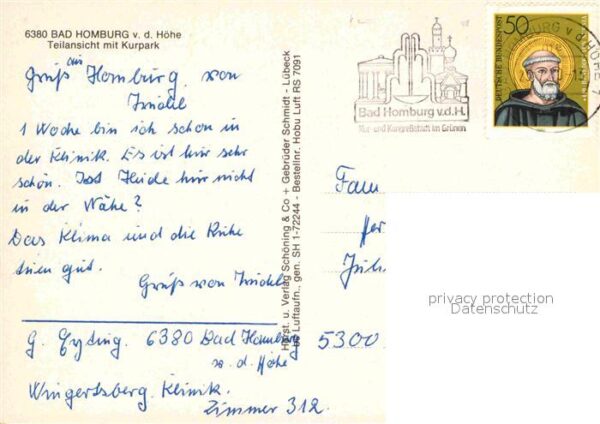 6380 BAD HOMBURG v. d. Höhe
Teilansicht mit Kurpark
Gruß aus Homburg von
1 Woche bin ich schon in
der Klinik. Es ist hier sehr
schön. Ist Heide hier nicht
in der Nähe?
Das Klima und die Ruhe
tuen gut.
Gruß von
G. Eyting. 6380 Bad Homburg
v. d. Höhe
Wingertsberg. Klinik.
Zimmer 312.
Horst. u. Verlag Schöning & Co + Gebrüder Schmidt - Lübeck
Luftaufn., gen. SH 1-72244 - Bestellnr. Hobu Luft RS 7091
Bad Homburg v.d.H.
Kur- und Kongreßstadt im Grünen
50
DEUTSCHE BUNDESPOST
HOMBURG v d HÖHE 1
Fam
Her
5300
privacy protection
Datenschutz